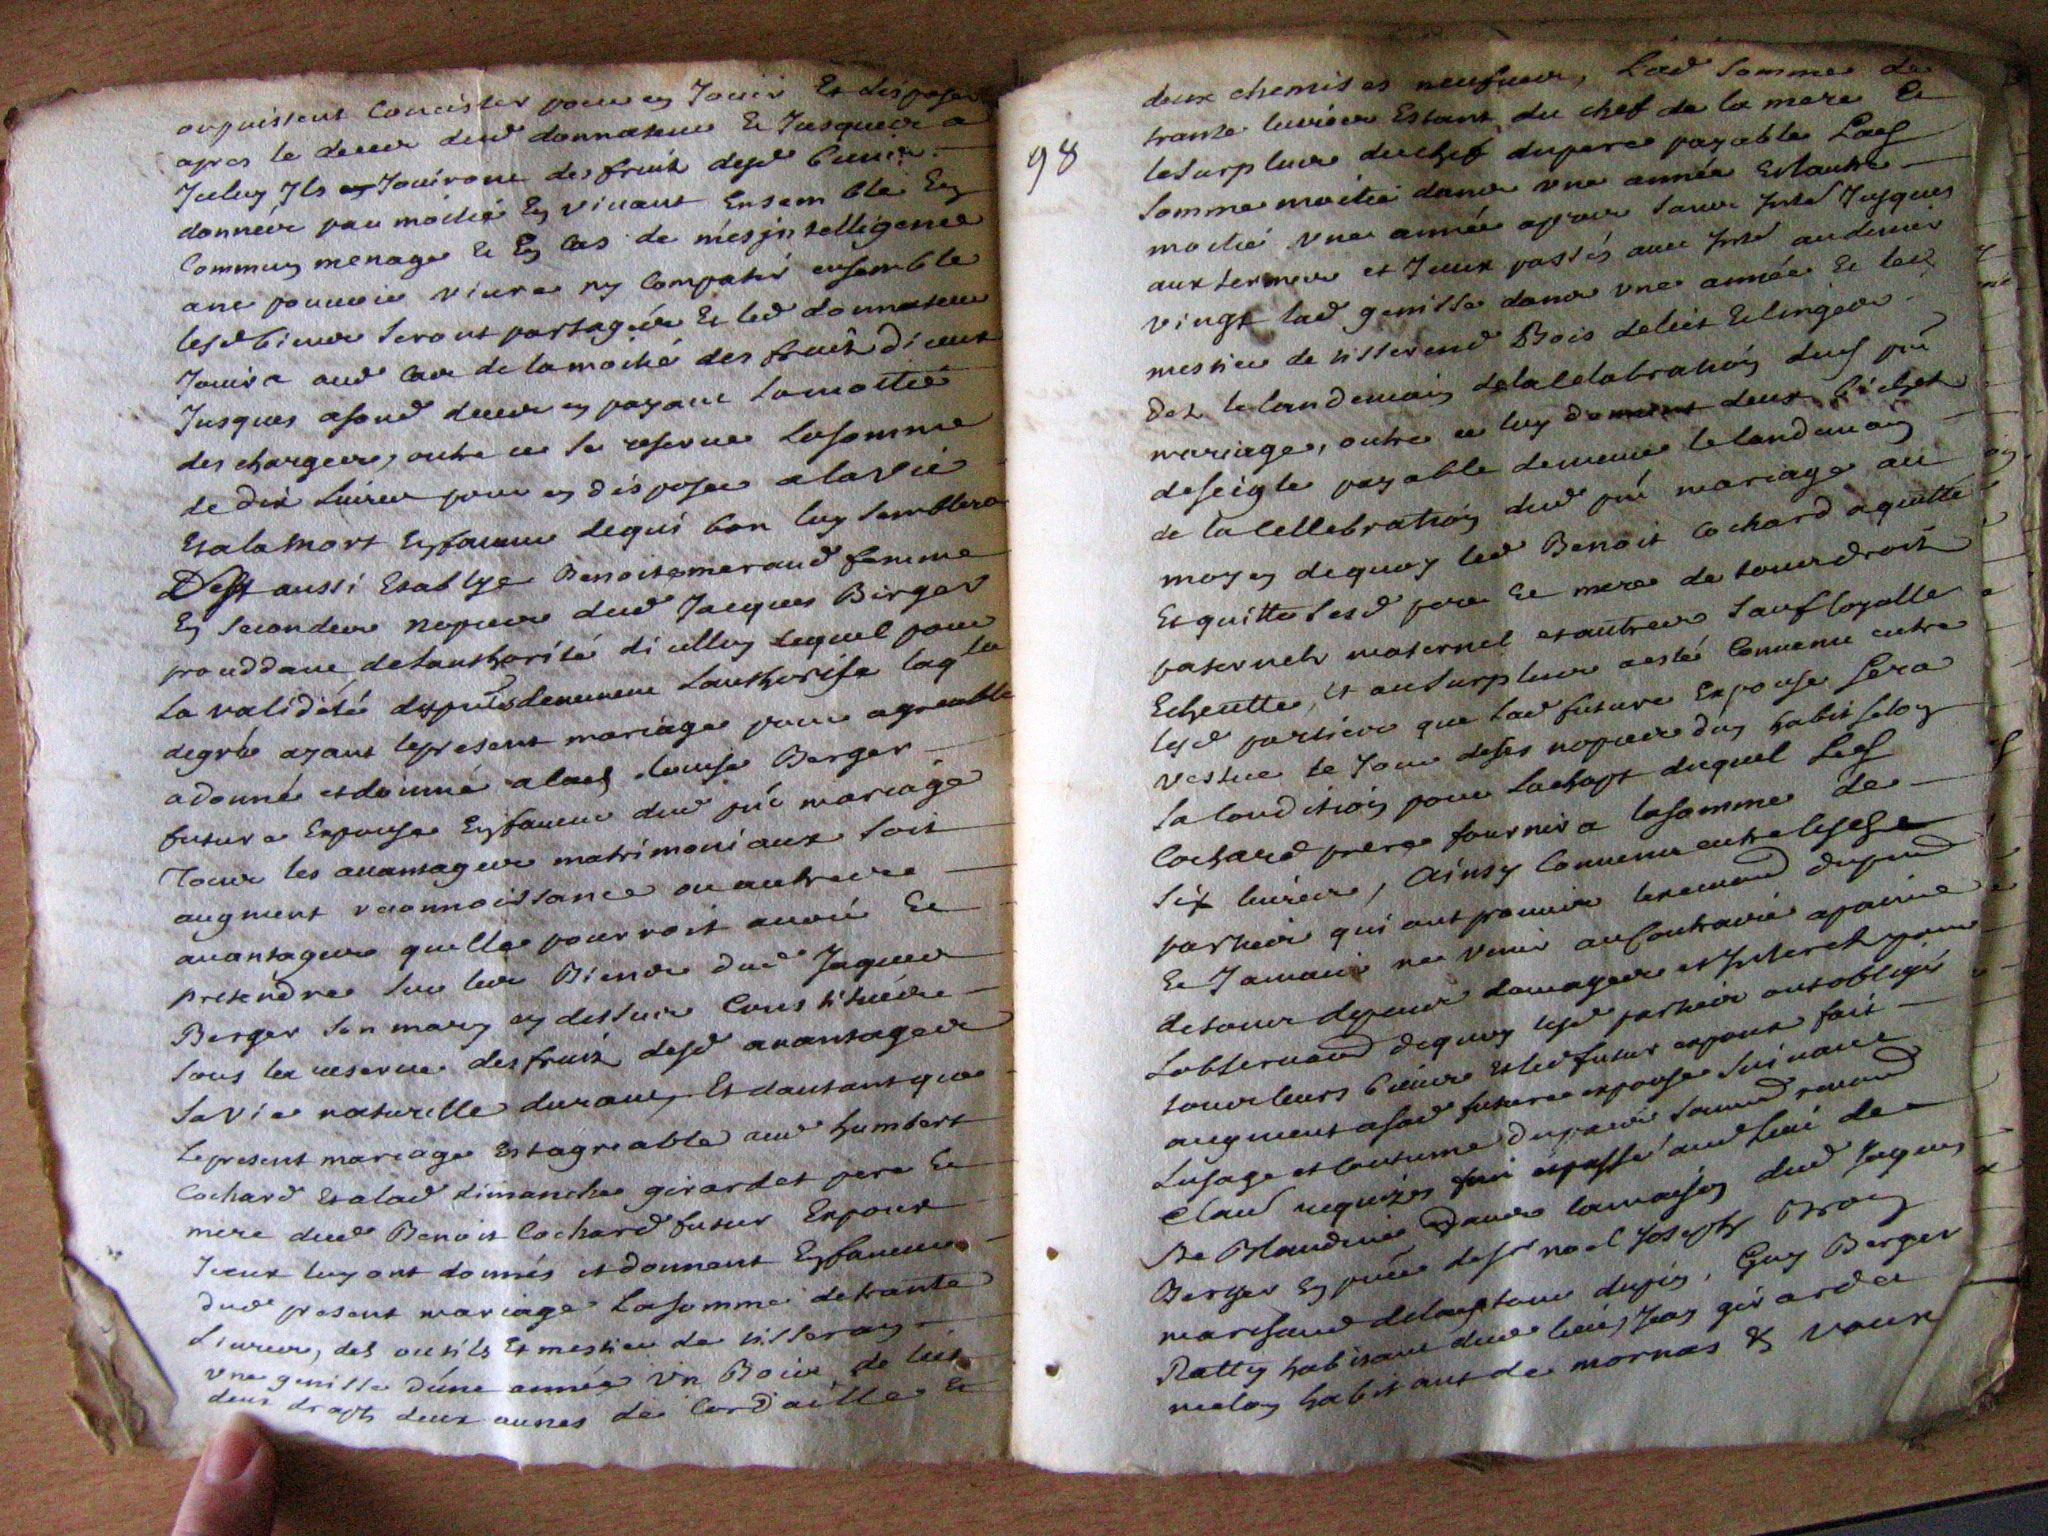 ou puissent concister pour en Jouir Et disposer
apres le deces dud donnateur Et Jusques a
Jceluy Jls en Jouiront des fruit desd biens
donnés par moitié En vivant Ensemble En
Commun menage Et En Cas de mesjntelligence
ane pouvoir vivre ny Compatir ensemble
lesd biens seront partagés Et led donnateur
Jouira aud Cas de la moitié des fruit diceux
Jusques asond deces en payant la moitié
des charges, outre ce se reserve la somme
de dix livres pour en disposer a la vie
Et a la mort En faveur de qui bon luy semblera
aussi Establye Benoiste meraud femme
En secondes nopces dud Jacques Berger
de lauthorité dicelluy lequel pour
la validité des presentes lauthorise laq'lle
degrée ayant le present mariage pour agreable
a donné et donne a lad Louise Berger
future Espouse En faveur dud p'nt mariage
Tous les avantages matrimoniaux soit
augment reconnoissance ou autres
avantages quelle pourroit avoir Et
pretendre sur les Biens dud Jaques
Berger son mary cy dessus Constitués
sous la reserve des fruit desd avantages
sa vie naturelle durant, Et dautant que
le present mariage Est agreable aud humbert
Cochard Et a lad dimanche girardet pere Et
mere dud Benoit Cochard futur Espoux
Jceux luy ont donnés et donnent En faveur
dud present mariage la somme de trante
Livres, des outils Et mestier de tisseran
vne genisse d'une année vn Bois de lict
deux drapts deux aunes de Cordaille Et
98
deux chemises neufves, Lad somme de
trante livres Estant du chef de la mere Et
le surplus du chef du pere payable Lad
somme moitié dans vne année Et lautre
moitié vne année apres sans Jnte'd Jusques
aux termes et Jceux passés avec Jnte'd au denier
vingt lad genisse dans vne année Et led
mestier de tisserend Bois de lict Et linges
dez le landemain de la celebration dud p'nt
mariage, outre ce luy donnent deux bichet
de seigle payable de mesme le landemain
de la cellebration dud p'nt mariage au
moyen de quoy led Benoit Cochard a quitté
Et quitte sesd pere Et mere de tous droit
paternels maternel et autres sauf loyalle
Echeutte, Et au surplus a esté Convenu entre
lesd parties que lad future Espouse sera
vestue le Jour de ses nopces dun habit selon
sa Condition pour lachapt duquel led
Cochard pere fournira la somme de
six livres, Ainsy Convenu entre lesd
parties qui ont promis
Et Jamais ne venir au Contraire a peine
de tous depens domages et Jnterets pour
Lobservation de quoy lesd parties ont obligés
tous leurs biens Et led futur espoux fait
augment a sad future espouse suivant
Lusage et Coutume du pais
fait et passé aud lieu de
Ste Blandine dans la maison dud Jaques
Berger En p'nce de s'r noel Joseph
marchand de la tour du pin, Guy Berger
Ratty habitant dud lieu, Jean girardet
melon habitant de mornas &